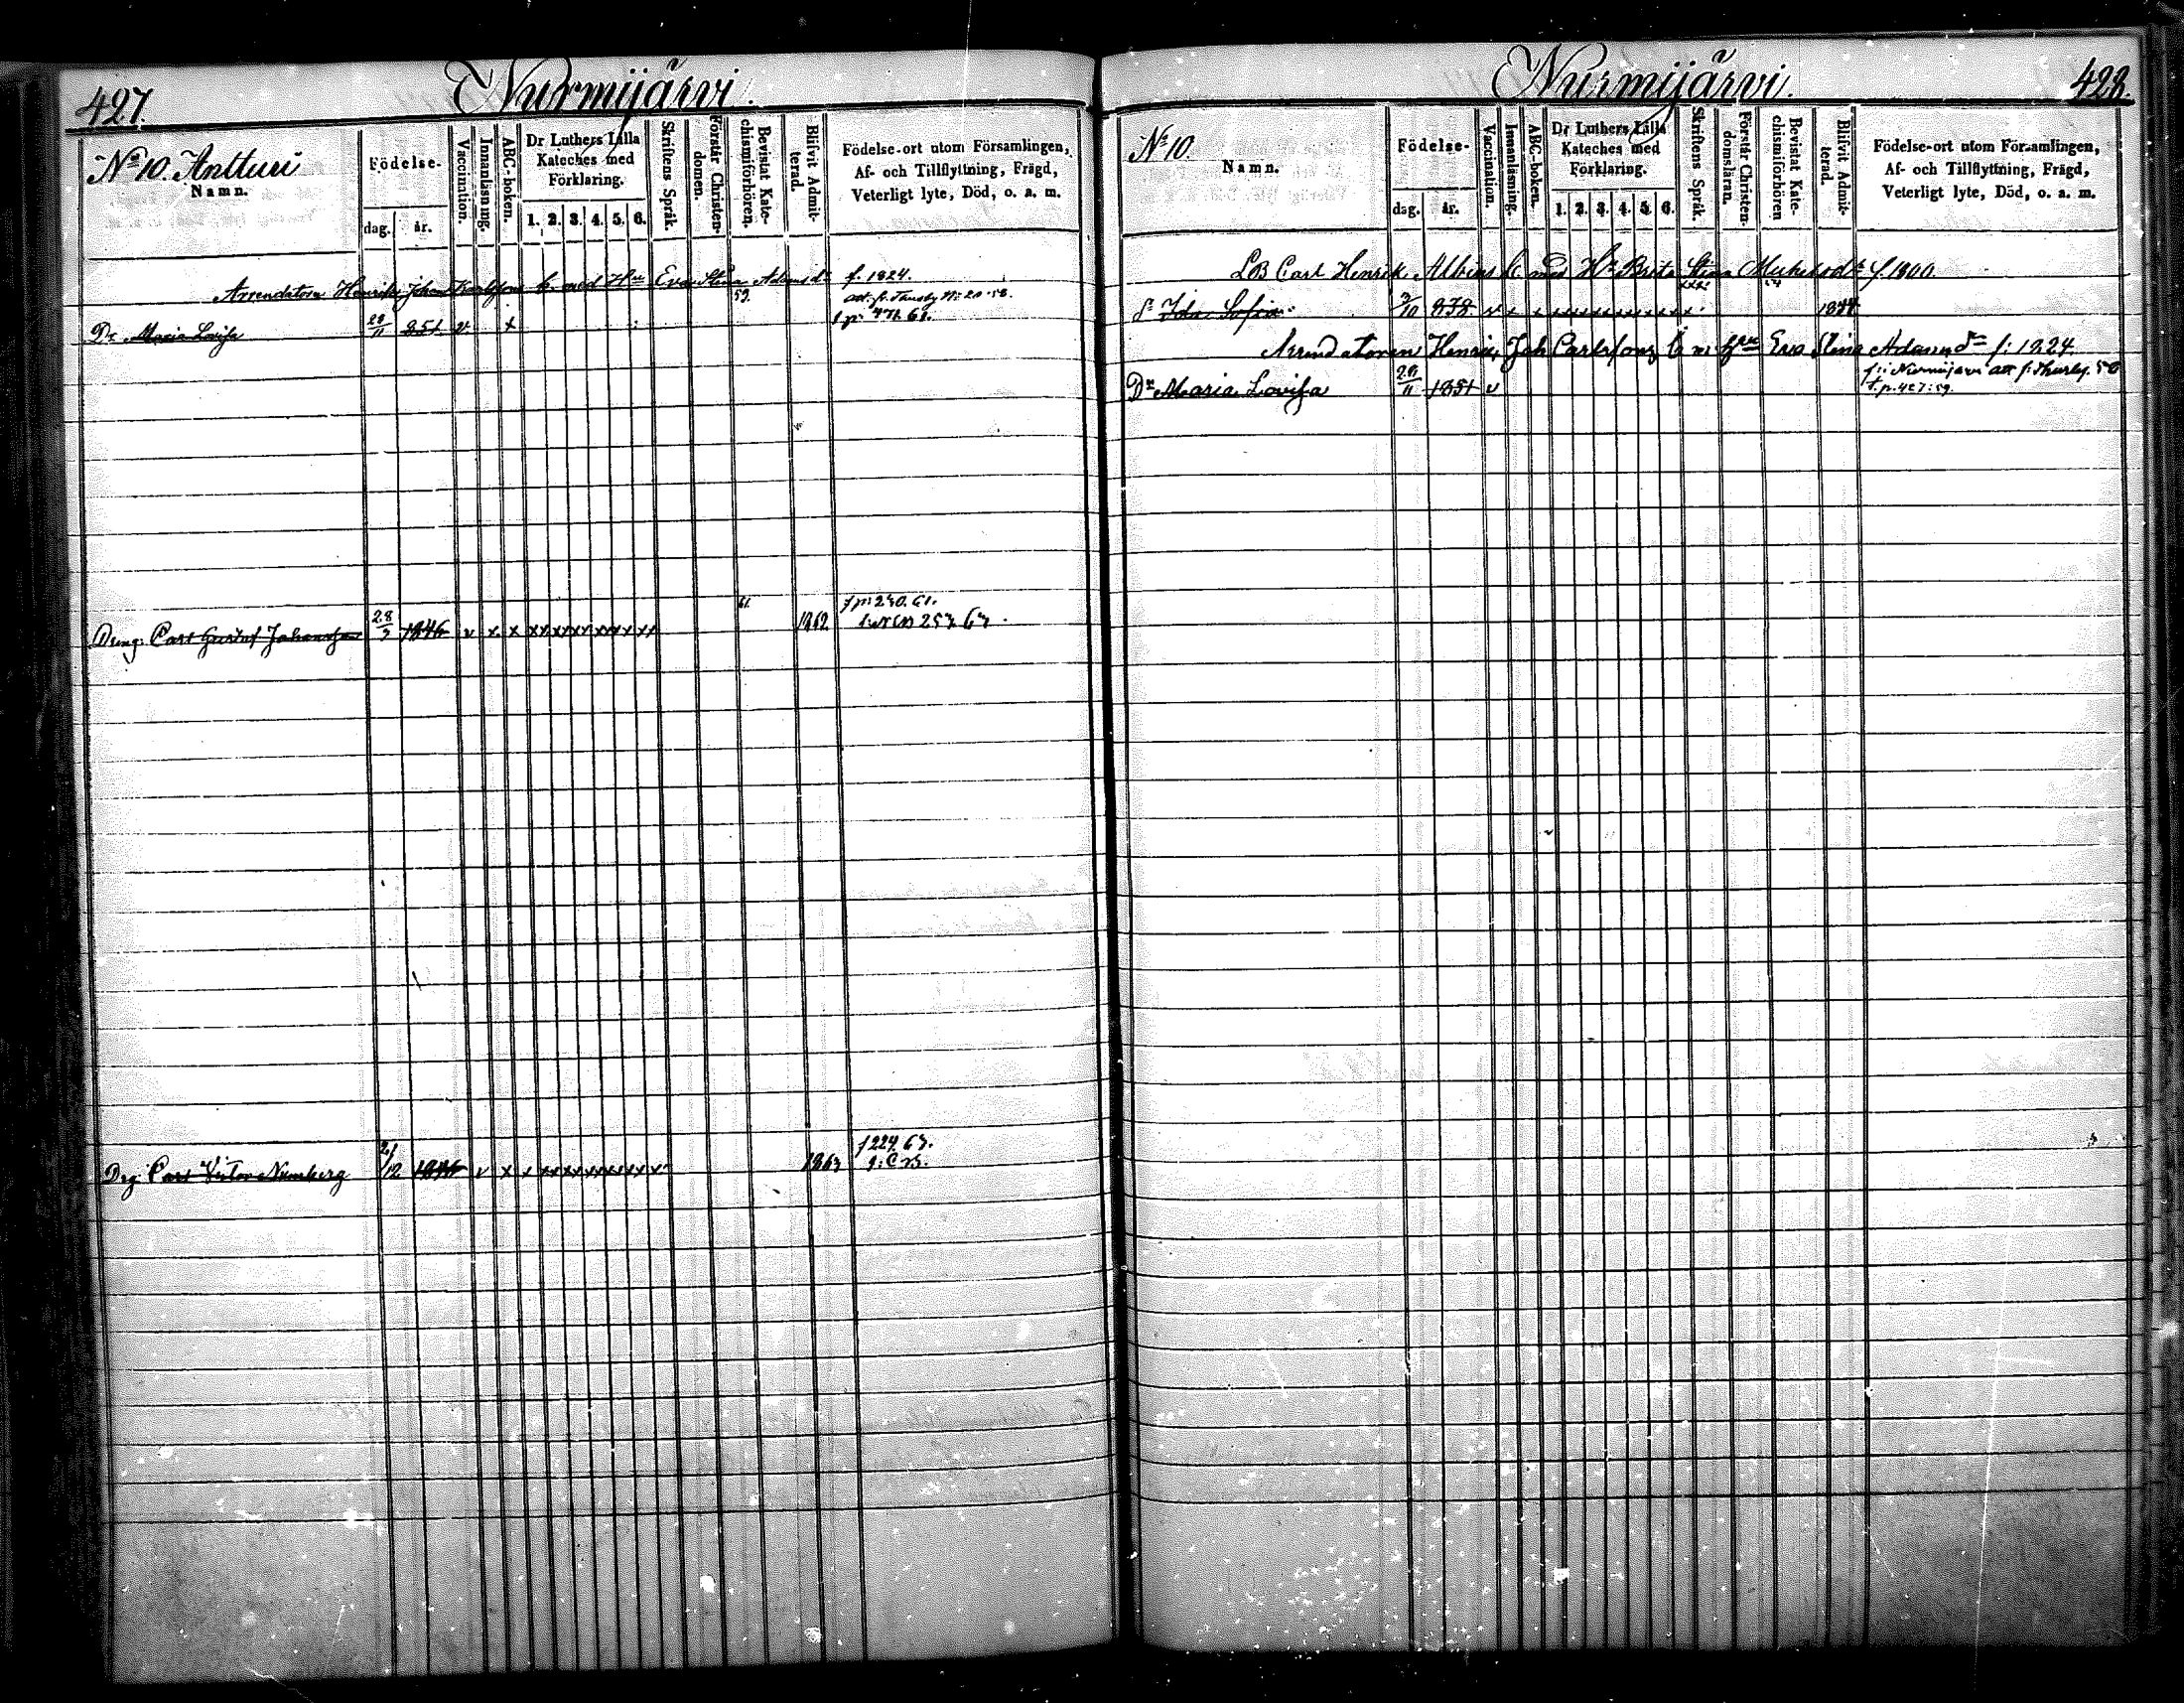 427. Nurmijärvi.
No 10. Antturi
Namn.
Födelse-
dag. år.
Vaccination.
Innanläsning.
ABC-boken.
Dr Luthers Lilla
Kateches med
Förklaring.
1. 2. 3. 4. 5. 6.
Skriftens Språk.
Förstår Christen-
domen.
Bevistat Kate-
chismiförhören.
Blifvit Admit-
terad.
Födelse-ort utom Församlingen,
Af- och Tillflyttning, Frägd,
Veterligt lyte, Död, o. a. m.
Arrendatorn Henrik Johan Karlssons b. med Hu Eva Stina Adamsdr f. 1824.
59.
Dr Maria Lovisa 28/11 851 v x
61.
f p: 240.61.
Dreng: Carl Gustaf Johansson 28/3 1846 v x x xx xx xx xx xx xx 1862
f 224 63.
Drg: Carl Victor Numberg 2/12 v x x xx xx xx xx xx x 1863
Nurmijärvi. 428.
No 10.
Namn.
Födelse-
dag. år.
Vaccination.
Innanläsning.
ABC-boken.
Dr Luthers Lilla
Kateches med
Förklaring.
1. 2. 3. 4. 5. 6.
Skriftens Språk.
Förstår Christen-
domsläran.
Bevistat Kate-
chismiförhören
Blifvit Admit-
terad.
Födelse-ort utom Församlingen,
Af- och Tillflyttning, Frägd,
Veterligt lyte, Död, o. a. m.
LB Carl Henrik Albins b med Hu Brita Stina f 1800.
Sofia 2/10 838 v x x
Arrendatoren Henric Joh Carlssons b m Hu Eva Stina Adamsdr f: 1824.
Dr Maria Lovisa 28/11 1851 v
f. p. 427:59.